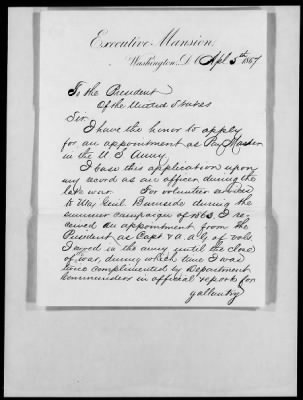 Executive Mansion,
Washington, D.C. Apl 5th 1867
To the President
Of the United States
Sir:
I have the honor to apply
for an appointment as Pay Master
in the U S Army
I base this application upon
my record as an officer during the
late war. For volunteer services
to Maj Genl Burnside during the
summer campaign of 1863, I re-
ceived an appointment from the
President as Capt & a.a.G. of vols.
I served in the army until the close
of war, during which time I was
complimented by Department
Commanders in official reports for
gallantry